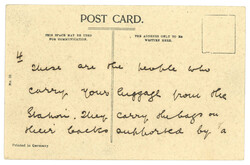 POST CARD.
THIS SPACE MAY BE USED
FOR COMMUNICATION.
THE ADDRESS ONLY TO BE
WRITTEN HERE.
4
These are the people who
carry your luggage from the
Station. They carry the bags on
their backs supported by a
Printed in Germany